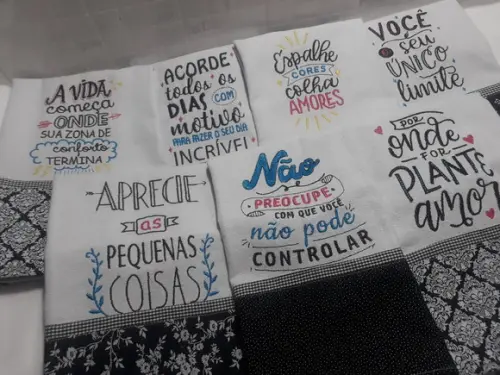 A VIDA
começa
ONDE
SUA ZONA DE
conforto
TERMINA
ACORDE
todos os
DIAS COM
motivo
PARA FAZER O SEU DIA
INCRÍVEL
Espalhe
CORES
colha
AMORES
VOCÊ
é seu
ÚNICO
limite
APRECIE
as
PEQUENAS
COISAS
Não
se
PREOCUPE
COM QUE VOCÊ
não pode
CONTROLAR
POR
onde
FOR
PLANTE
amor